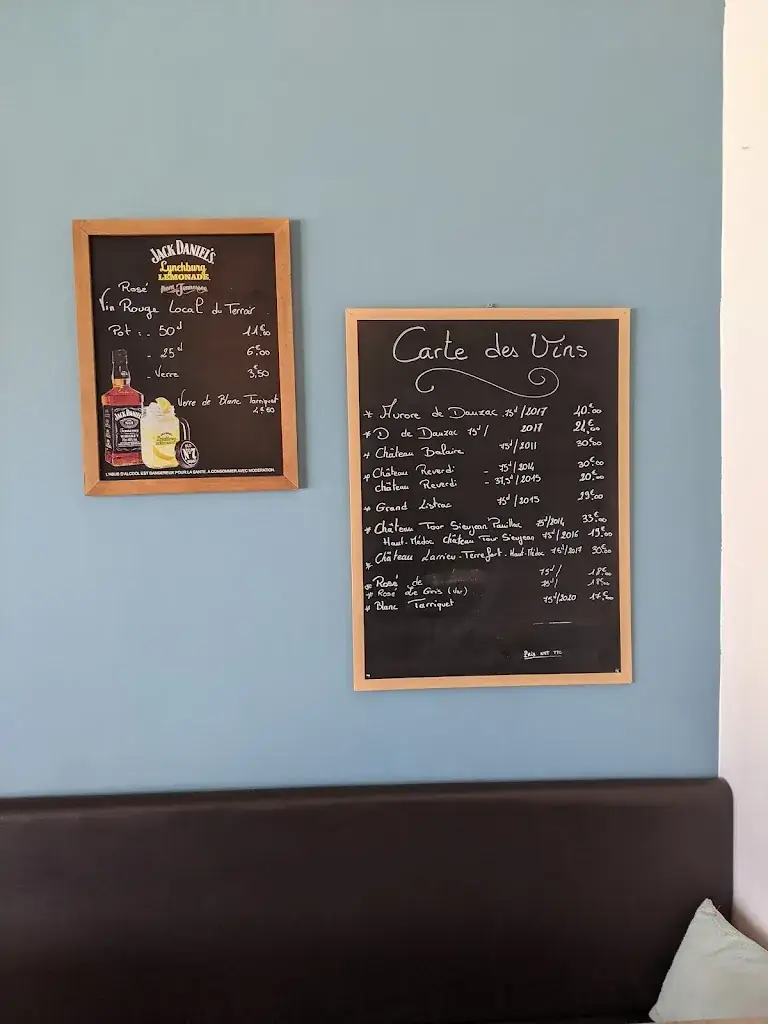 JACK DANIEL'S
Lynchburg
LEMONADE
Rosé
Vin Rouge Local du Terroir
Pot : - 50cl 11€00
- 25cl 6€00
- Verre 3,50
Verre de Blanc Tarriquet
4€60
JACK DANIEL'S
No 7
L'ABUS D'ALCOOL EST DANGEREUX POUR LA SANTÉ. A CONSOMMER AVEC MODÉRATION.
Carte des Vins
* Aurore de Dauzac 75cl/2017 40€00
* D de Dauzac 75cl/ 2017 24€00
* Château Balaire 75cl/2011 30€00
* Château Reverdi - 75cl/2014 30€00
Château Reverdi - 37,5cl/2015 20€00
* Grand Listrac 75cl/2015 29€00
* Château Tour Sieujean Pauillac 75cl/2014 33€00
Haut-Médoc Château Tour Sieujean 75cl/2016 19€00
Château Larrieu-Terrefort. Haut-Médoc 75cl/2017 30€00
*
* Rosé de 75cl/ 18€00
* Rosé Le Gris (Var) 75cl/ 18€00
* Blanc Tarriquet 75cl/2020 17€00
Prix NET TTC